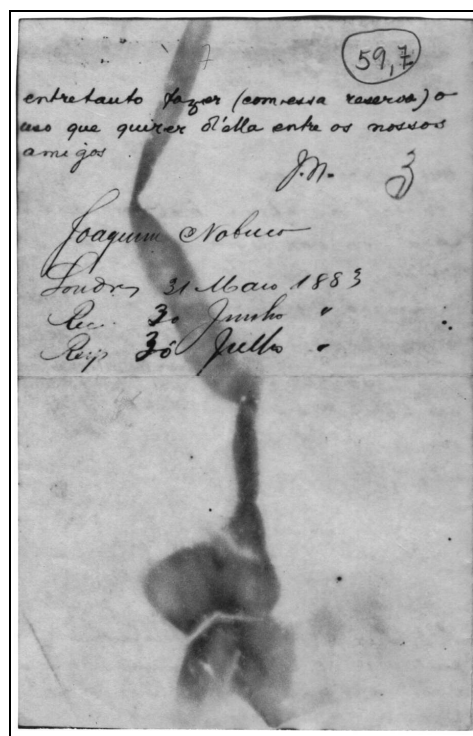 59,7
entretanto fazer (com essa reserva) o
uso que quizer d'ella entre os nossos
amigos
J.N.
Joaquim Nabuco
Londres 31 Maio 1883
Rec. 30 Junho "
Resp 30 Julho "